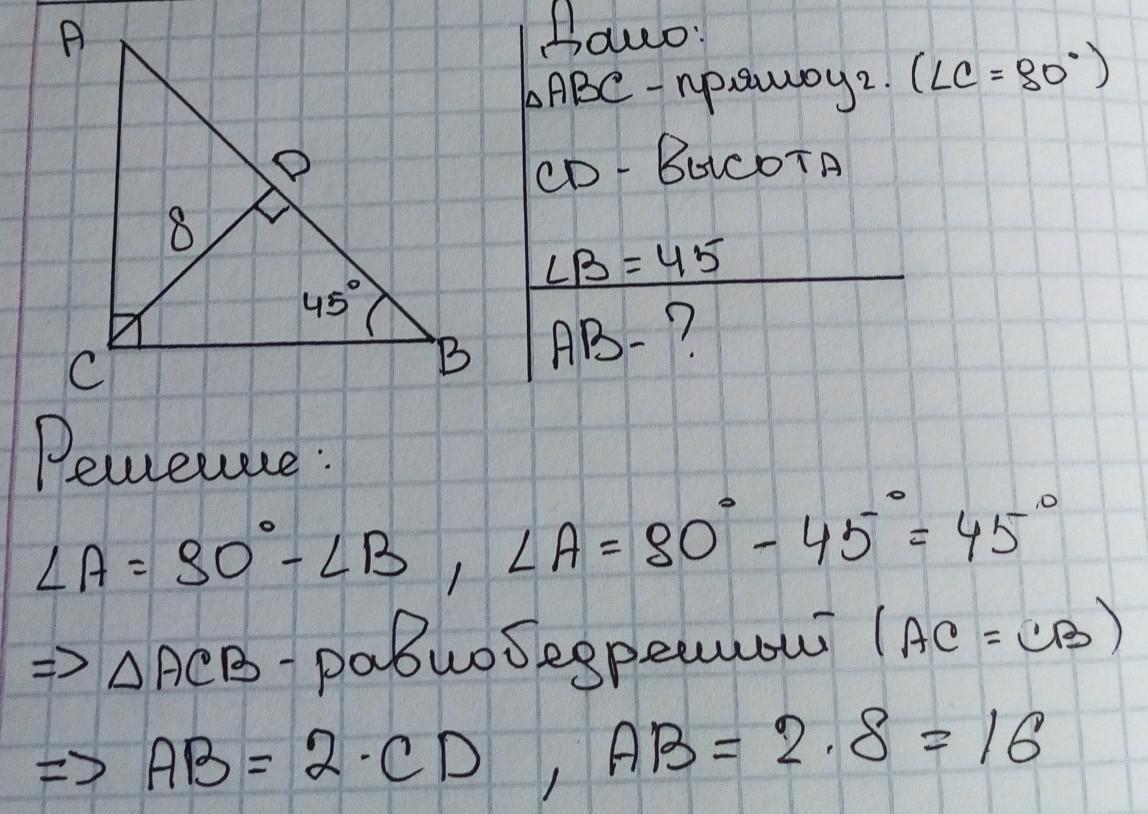 A
D
8
45°
C
B
Дано:
△ABC - прямоуг. (∠C = 90°)
CD - Высота
∠B = 45
AB - ?
Решение:
∠A = 90° - ∠B , ∠A = 90° - 45° = 45°
=> △ACB - равнобедренный (AC = CB)
=> AB = 2 · CD , AB = 2 · 8 = 16